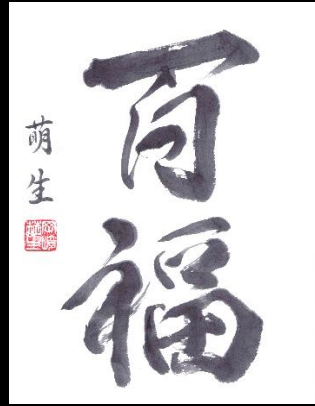 百福
萌生